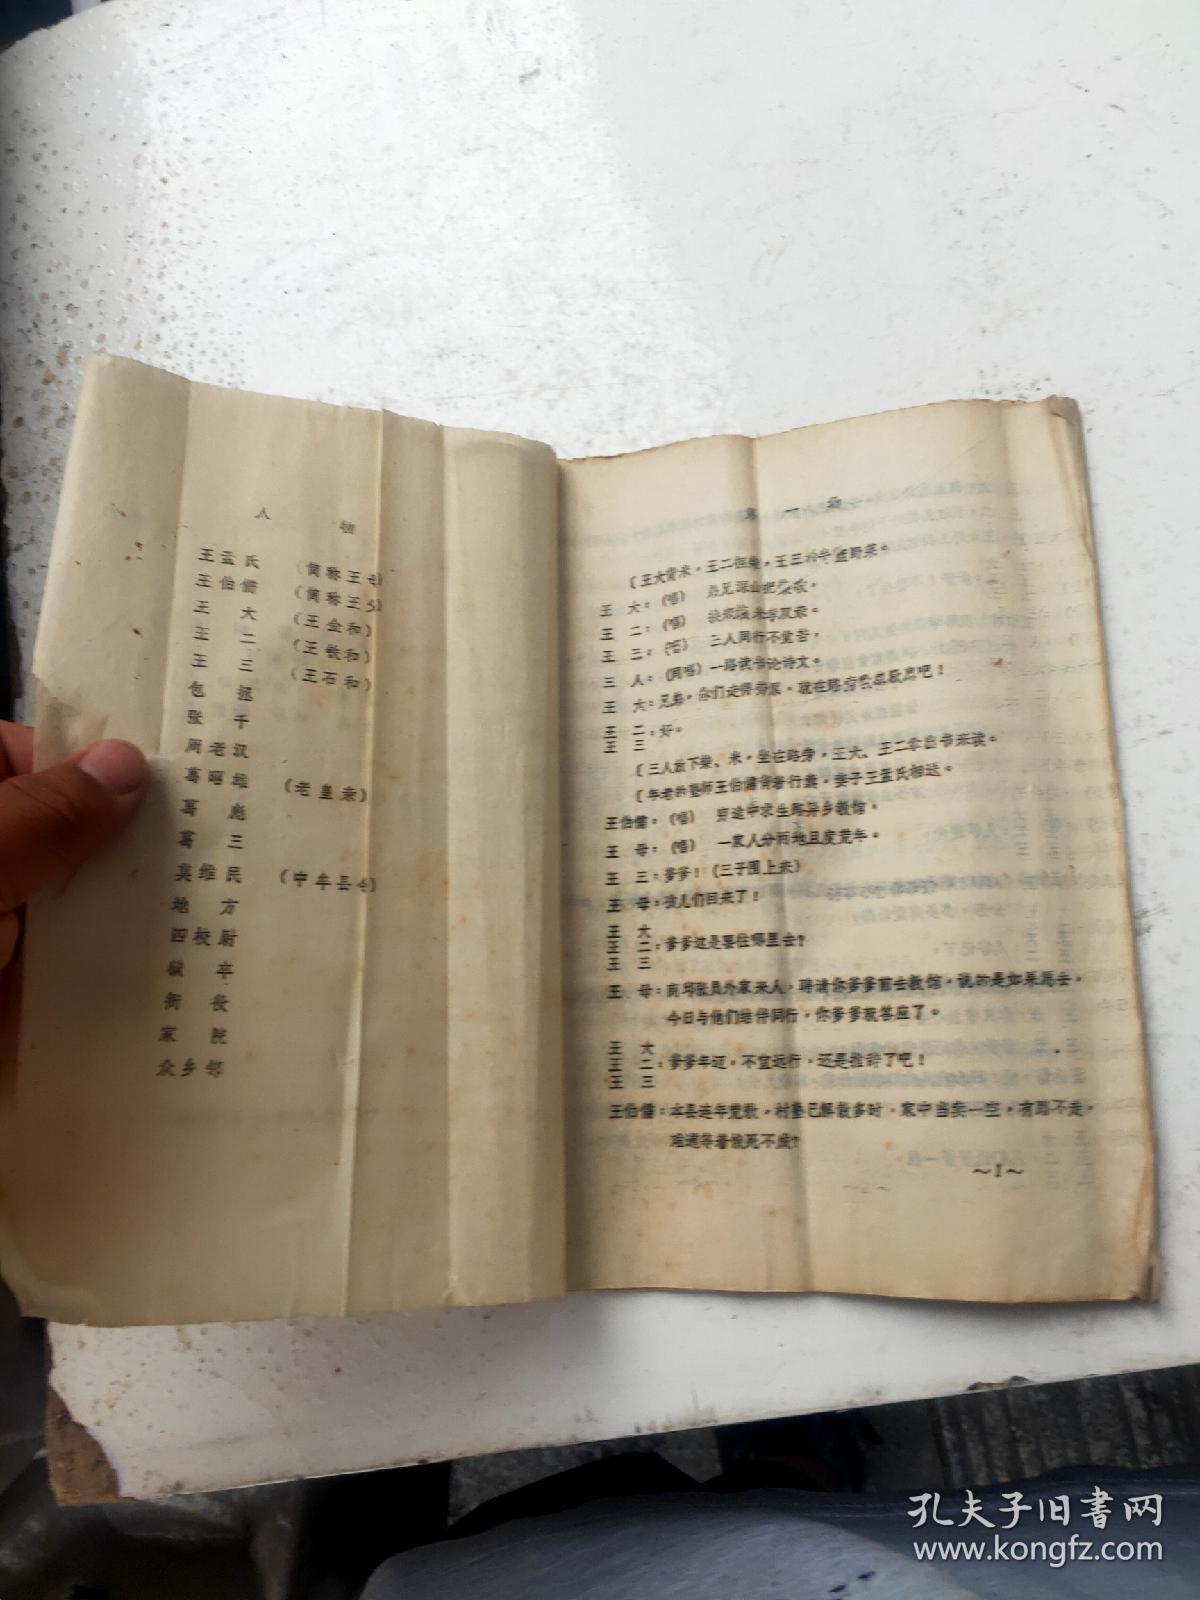 人 物
王孟氏 (简称王母)
王伯儒 (简称王父)
王 大 (王金和)
王 二 (王铁和)
王 三 (王石和)
包 拯
张 千
周老汉
葛昭雄 (老皇亲)
葛 彪
葛 三
莫维民 (中牟县令)
地 方
四校尉
狱 卒
衙 役
家 院
众乡邻
第 一 场
〔王大背米,王二担柴,王三
王 大:(唱)
王 二:(唱)
王 三:(唱) 三人同行不觉苦。
三 人:(同唱)一路读书论诗文。
王 大:兄弟,你们走得劳累,就在路旁
王 二
王 三:好。
〔三人放下柴、米,坐在路旁,王大、王二拿出书来读。
〔年老的塾师王伯儒背着行囊,妻子王孟氏相送。
王伯儒:(唱) 穷途中求生路异乡教馆。
王 母:(唱) 一家人分两地且度荒年。
王 三:爹爹!(三子围上来)
王 母:孩儿们回来了!
王 大
王 二:爹爹这是要往哪里去?
王 三
王 母:商邱张员外家来人,聘请你爹爹前去教馆,说的是如果愿去,
今日与他们结伴同行,你爹爹就答应了。
王 大
王 二:爹爹年迈,不宜远行,还是推辞了吧!
王 三
王伯儒:本县连年荒歉,村塾已解散多时,家中当卖一空,有路不走,
难道等着饿死不成?
~1~
孔夫子旧书网
www.kongfz.com